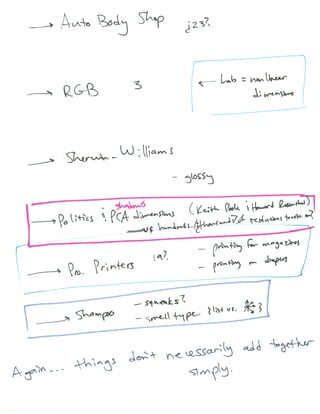 → Auto Body Shop ¿23?
→ RGB 3
← Lab = nonlinear
dimensions
→ Sherwin-Williams
- glossy
shadows
→ Politics & PCA dimensions (Keith Poole & Howard Rosenthal)
hundreds of thousands of
→ Pro. Printers 19?
- printing for magazines
- printing on diapers
→ Shampoo
- squeaks?
- smell type
Again... things don't necessarily add together
simply.